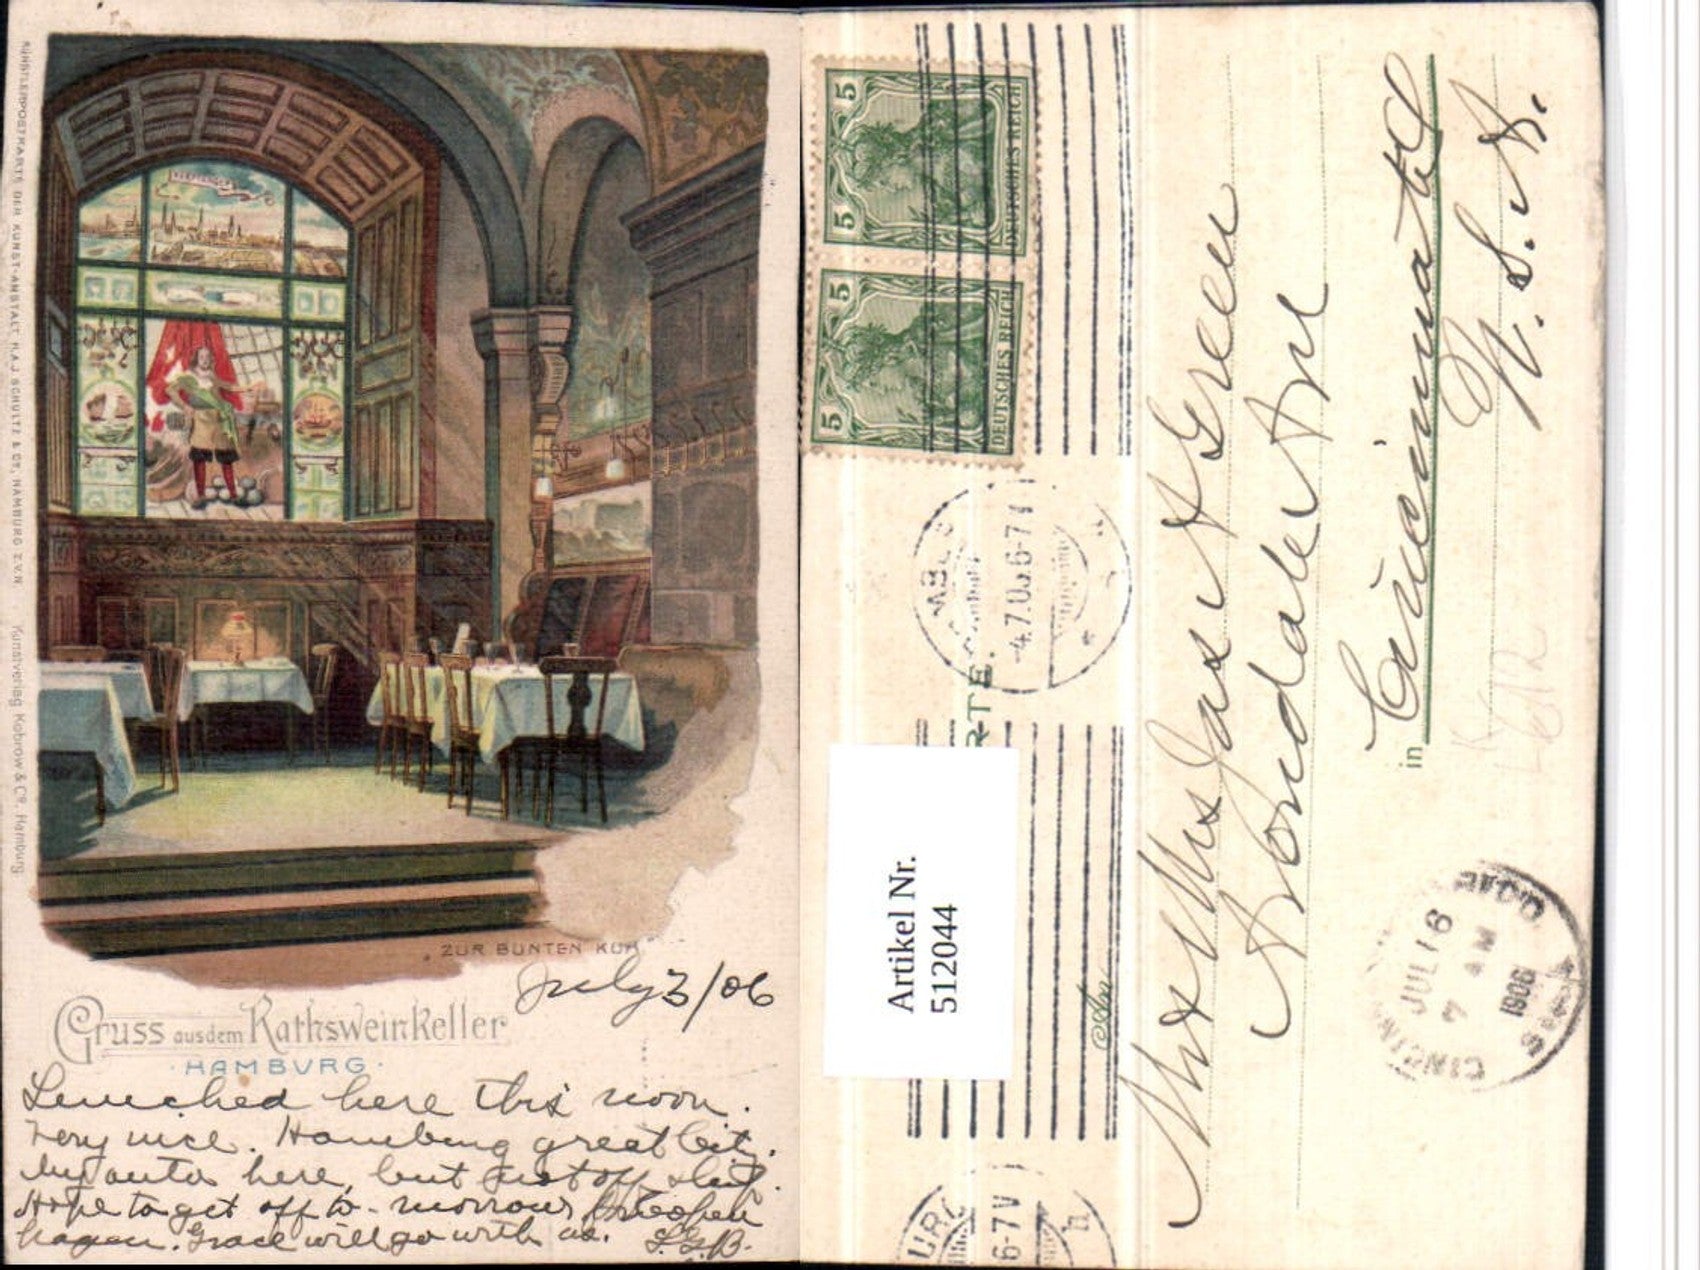 KÜNSTLERPOSTKARTE DER KUNST-ANSTALT H.A.J. SCHULTZ & CO, HAMBURG Z.V.N.
Kunstverlag Kobrow & Co. Hamburg
„ZUR BUNTEN KUH“
July 3/06
Gruss aus dem Rathsweinkeller
· HAMBURG ·
Lunched here this noon.
Very nice. Hamburg great City.
My auto here, but not off ship.
Hope to get off to-morrow for Copen
hagen. Grace will go with us. L.G.B.
5 5
DEUTSCHES REICH
5 5
DEUTSCHES REICH
-4.7.06.6-7V
RTE.
Artikel Nr.
512044
An
Mr & Mrs Jas A Green
Avondale Ave
in Cincinnati
O.
U.S.A.
JUL 16
7 AM
1906
URG
6-7V